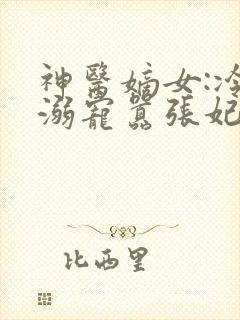 神醫嫡女:冷
溺寵囂張妃
比西里